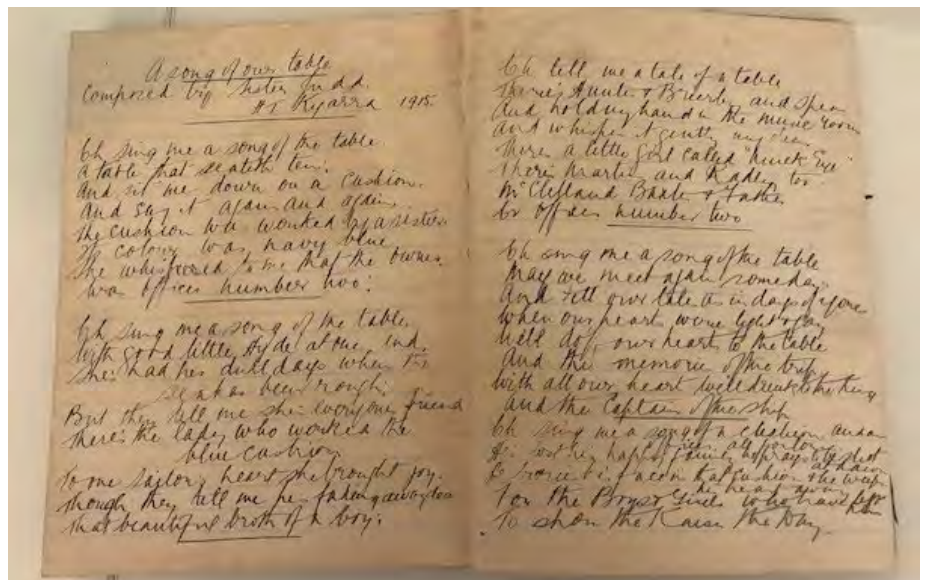 A song of our table
Composed by Sister Judd.
HT Kyarra 1915.
Oh sing me a song of the table
a table that seateth ten.
And sit me down on a cushion.
And say it again and again
The cushion was worked by a sister
It colour was navy blue
She whispered to me that the owner
was officer number two.
Oh sing me a song of the table
With good little Hyde at one end.
She had her dull days when the
sea has been rough.
But they tell me she's everyone friend
There's the lady who worked the
blue cushion
To one sailors heart she brought joy.
Though they tell me he's fading away too
That beautiful broth of a boy.
Oh tell me a tale of a table
There's Hunter & Brierly and Spear
And hold my hand in the music room
And whisper it gently my dear
There's a little girl called
There's Martin and Radley too
McClelland Baxter & Father
Or officer number two
Oh sing me a song of the table
May we meet again someday
And tell our tale as in days of yore
When our hearts were light & gay
We'll our hearts to the table
And the memory of the trip
With all our heart we'll drink to the King
And the Captain of the ship
Oh sing me a song of a
His happy family
cushion
For the Boys lines who have left
To show the Kaiser the Day